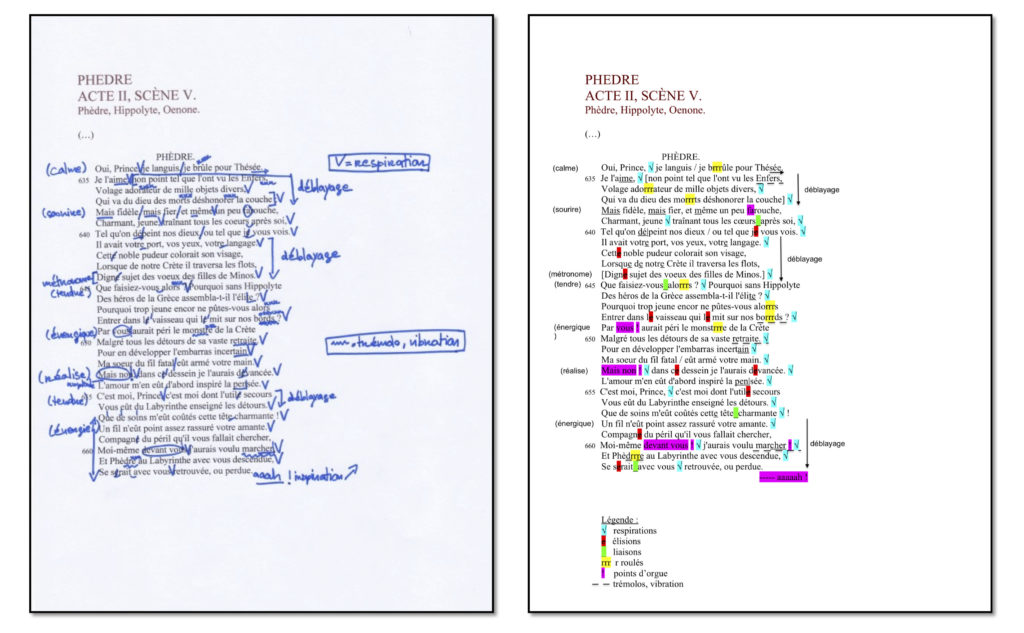 PHEDRE
ACTE II, SCÈNE V.
Phèdre, Hippolyte, Oenone.
(…)
PHÈDRE.
V = respiration
(calme) Oui, Prince, V je languis / je brûle pour Thésée.
635 Je l'aime, V non point tel que l'ont vu les Enfers,
Volage adorateur de mille objets divers, V
déblayage
Qui va du dieu des morts déshonorer la couche ] V
(sourire) Mais fidèle / mais fier / et même un peu farouche,
Charmant, jeune, V traînant tous les coeurs après soi, V
640 Tel qu'on dépeint nos dieux / ou tel que je vous vois. V
Il avait votre port, vos yeux, votre langage. V
Cette noble pudeur colorait son visage,
déblayage
Lorsque de notre Crète il traversa les flots,
métronome [Digne sujet des voeux des filles de Minos. V
(tendre) Que faisiez-vous alors ? V Pourquoi sans Hippolyte
Des héros de la Grèce assembla-t-il l'élite ? V
Pourquoi trop jeune encor ne pûtes-vous alors
Entrer dans le vaisseau qui le mit sur nos bords ? V
(énergique) Par vous aurait péri le monstre de la Crète
650 Malgré tous les détours de sa vaste retraite. V
trémolo, vibration
Pour en développer l'embarras incertain V
Ma soeur du fil fatal eût armé votre main. V
(réalise) Mais non, V dans ce dessein je l'aurais devancée. V
L'amour m'en eût d'abord inspiré la pensée.
(tendre) C'est moi, Prince, V c'est moi dont l'utile secours
déblayage
Vous eût du Labyrinthe enseigné les détours. V
Que de soins m'eût coûtés cette tête charmante ! V
(énergie) Un fil n'eût point assez rassuré votre amante. V
Compagne du péril qu'il vous fallait chercher,
660 Moi-même devant vous V j'aurais voulu marcher V
Et Phèdre au Labyrinthe avec vous descendue, V
Se serait avec vous V retrouvée, ou perdue.
aaah ! inspiration
PHEDRE
ACTE II, SCÈNE V.
Phèdre, Hippolyte, Oenone.
(…)
PHÈDRE.
(calme) Oui, Prince, √ je languis / je brrrûle pour Thésée.
635 Je l'aime, √ [non point tel que l'ont vu les Enfers,
Volage adorrrateur de mille objets divers, √
déblayage
Qui va du dieu des morrrts déshonorer la couche] √
(sourire) Mais fidèle, mais fier, et même un peu farouche,
Charmant, jeune √ traînant tous les cœurs_après soi, √
640 Tel qu'on dé|peint nos dieux / ou tel que je vous vois. √
Il avait votre port, vos yeux, votre langage. √
Cette noble pudeur colorait son visage,
déblayage
Lorsque de notre Crète il traversa les flots,
(métronome) [Digne sujet des voeux des filles de Minos.] √
(tendre) 645 Que faisiez-vous_alorrrs ? √ Pourquoi sans Hippolyte
Des héros de la Grèce assembla-t-il l'élite ? √
Pourquoi trop jeune encor ne pûtes-vous alorrrs
Entrer dans le vaisseau qui le mit sur nos borrrds ? √
(énergique) Par vous ! aurait péri le monstrrre de la Crète
650 Malgré tous les détours de sa vaste retraite. √
Pour en développer l'embarras incertain √
Ma soeur du fil fatal / eût armé votre main. √
(réalise) Mais non ! √ dans ce dessein je l'aurais devancée. √
L'amour m'en eût d'abord inspiré la pensée.
655 C'est moi, Prince, √ c'est moi dont l'utile secours
Vous eût du Labyrinthe enseigné les détours. √
Que de soins m'eût coûtés cette tête_charmante √ !
(énergique) Un fil n'eût point assez rassuré votre amante. √
Compagne du péril qu'il vous fallait chercher,
660 Moi-même devant vous ! √ j'aurais voulu marcher ! √
déblayage
Et Phèdrrre au Labyrinthe avec vous descendue, √
Se serait_avec vous √ retrouvée, ou perdue.
----- aaaaah !
Légende :
√ respirations
e élisions
_ liaisons
rrr r roulés
! points d'orgue
– – – trémolos, vibration